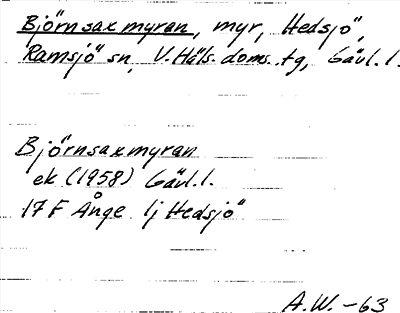 Björnsaxmyran, myr, Hedsjö,
Ramsjö sn, V. Häls. doms. tg, Gävl. l.
Björnsaxmyran
ek (1958) Gävl. l.
17 F Ånge lj Hedsjö
A.W. -63